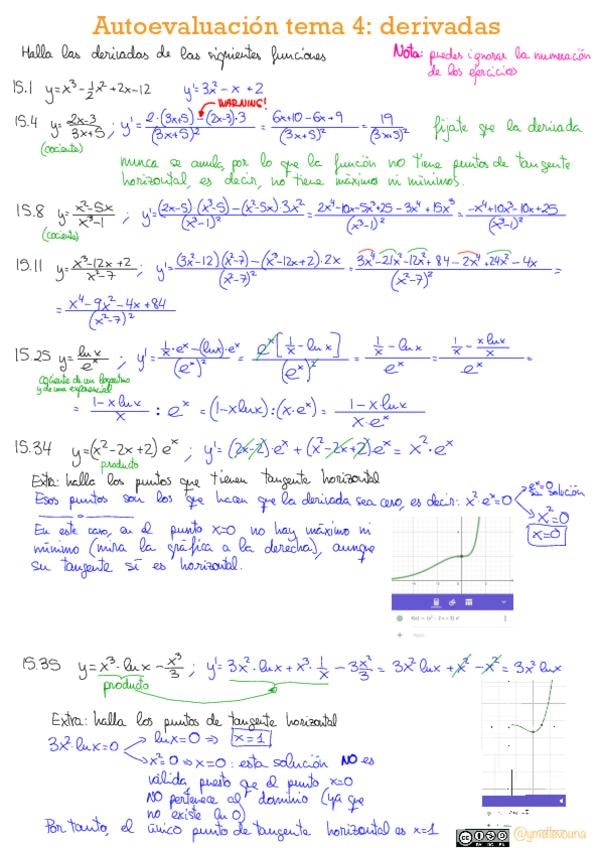 Autoevaluación tema 4: derivadas
Halla las derivadas de las siguientes funciones
Nota: puedes ignorar la numeración
de los ejercicios
15.1 y=x³-½x²+2x-12 y'=3x²-x+2
WARNING!
15.4 y=(2x-3)/(3x+5); y'=(2·(3x+5)-(2x-3)·3)/(3x+5)²=(6x+10-6x+9)/(3x+5)²=19/(3x+5)² fíjate que la derivada
(cociente)
nunca se anula, por lo que la función no tiene puntos de tangente
horizontal, es decir, no tiene máximo ni mínimos.
15.8 y=(x²-5x)/(x³-1); y'=((2x-5)(x³-1)-(x²-5x)·3x²)/(x³-1)²=(2x⁴-10x-5x³+25-3x⁴+15x³)/(x³-1)²=(-x⁴+10x³-10x+25)/(x³-1)²
(cociente)
15.11 y=(x³-12x+2)/(x²-7); y'=((3x²-12)(x²-7)-(x³-12x+2)·2x)/(x²-7)²=(3x⁴-21x²-12x²+84-2x⁴+24x²-4x)/(x²-7)²=
=(x⁴-9x²-4x+84)/(x²-7)²
15.25 y=lnx/eˣ; y'=(1/x·eˣ-(lnx)·eˣ)/(eˣ)²=eˣ[1/x-lnx]/(eˣ)²=(1/x-lnx)/eˣ=(1/x-xlnx/x)/eˣ=
cociente de un logaritmo
y de una exponencial
=(1-xlnx)/x : eˣ=(1-xlnx):(x·eˣ)=(1-xlnx)/(x·eˣ)
15.34 y=(x²-2x+2)eˣ; y'=(2x-2)·eˣ+(x²-2x+2)·eˣ=x²·eˣ
producto
Extra: halla los puntos que tienen tangente horizontal
Esos puntos son los que hacen que la derivada sea cero, es decir: x²·eˣ=0
eˣ=0
sin solución
x²=0
x=0
En este caso, en el punto x=0 no hay máximo ni
mínimo (mira la gráfica a la derecha), aunque
su tangente sí es horizontal.
f(x) = (x² - 2x + 2) eˣ
15.35 y=x³·lnx-x³/3; y'=3x²·lnx+x³·1/x-3x²/3=3x²lnx+x²-x²=3x²lnx
producto
Extra: halla los puntos de tangente horizontal
3x²·lnx=0
lnx=0⇒x=1
x²=0⇒x=0: esta solución NO es
válida, puesto que el punto x=0
NO pertenece al dominio (ya que
no existe ln 0)
Por tanto, el único punto de tangente horizontal es x=1